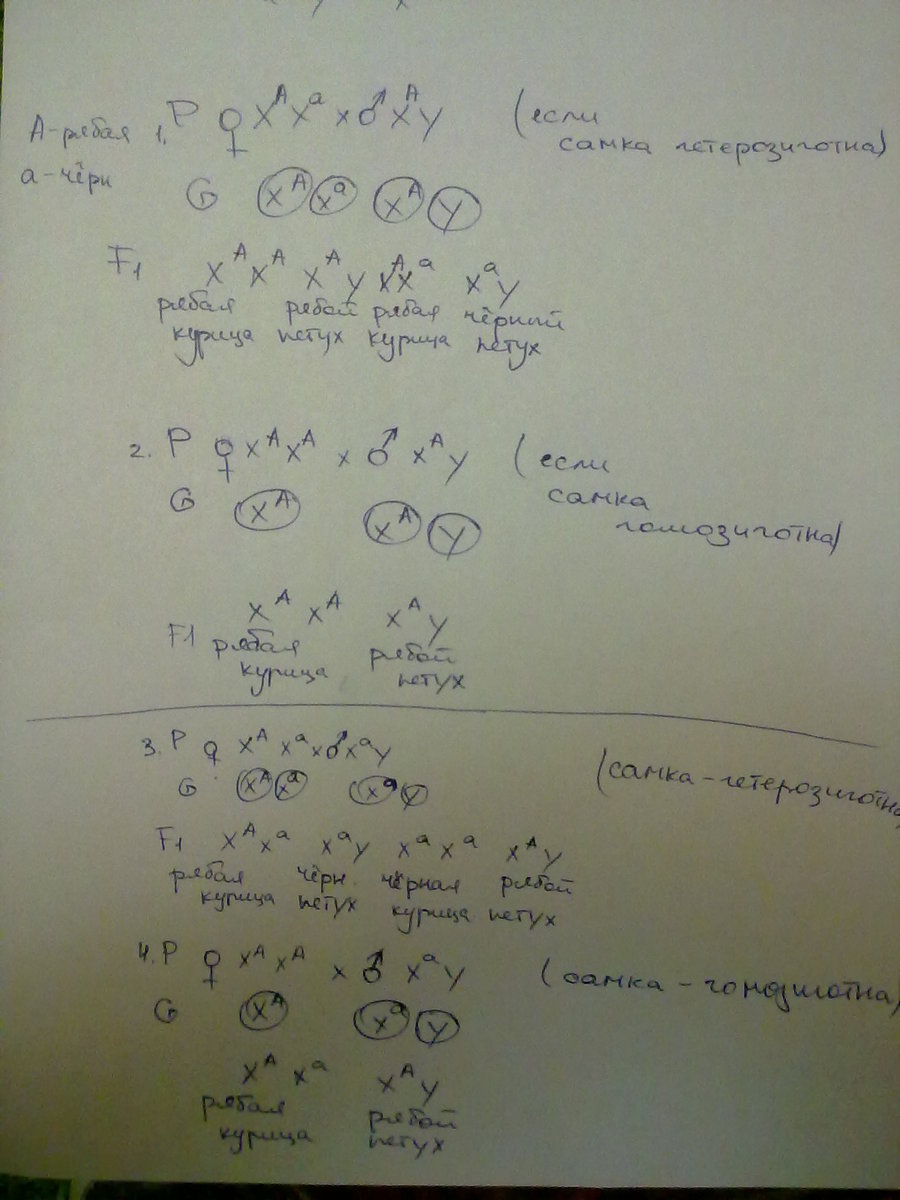 А-рябая 1. P ♀ X^A X^a x ♂ X^A Y (если
а-чёрн самка гетерозиготна)
G X^A X^a X^A Y
F1 X^A X^A X^A Y X^A X^a X^a Y
рябая рябой рябая чёрный
курица петух курица петух
2. P ♀ X^A X^A x ♂ X^A Y (если
самка
гомозиготна)
G X^A X^A Y
F1 X^A X^A X^A Y
рябая рябой
курица петух
3. P ♀ X^A X^a x ♂ X^a Y (самка - гетерозиготна)
G X^A X^a X^a Y
F1 X^A X^a X^a Y X^a X^a X^A Y
рябая чёрн. чёрная рябой
курица петух курица петух
4. P ♀ X^A X^A x ♂ X^a Y (самка - гомозиготна)
G X^A X^a Y
X^A X^a X^A Y
рябая рябой
курица петух